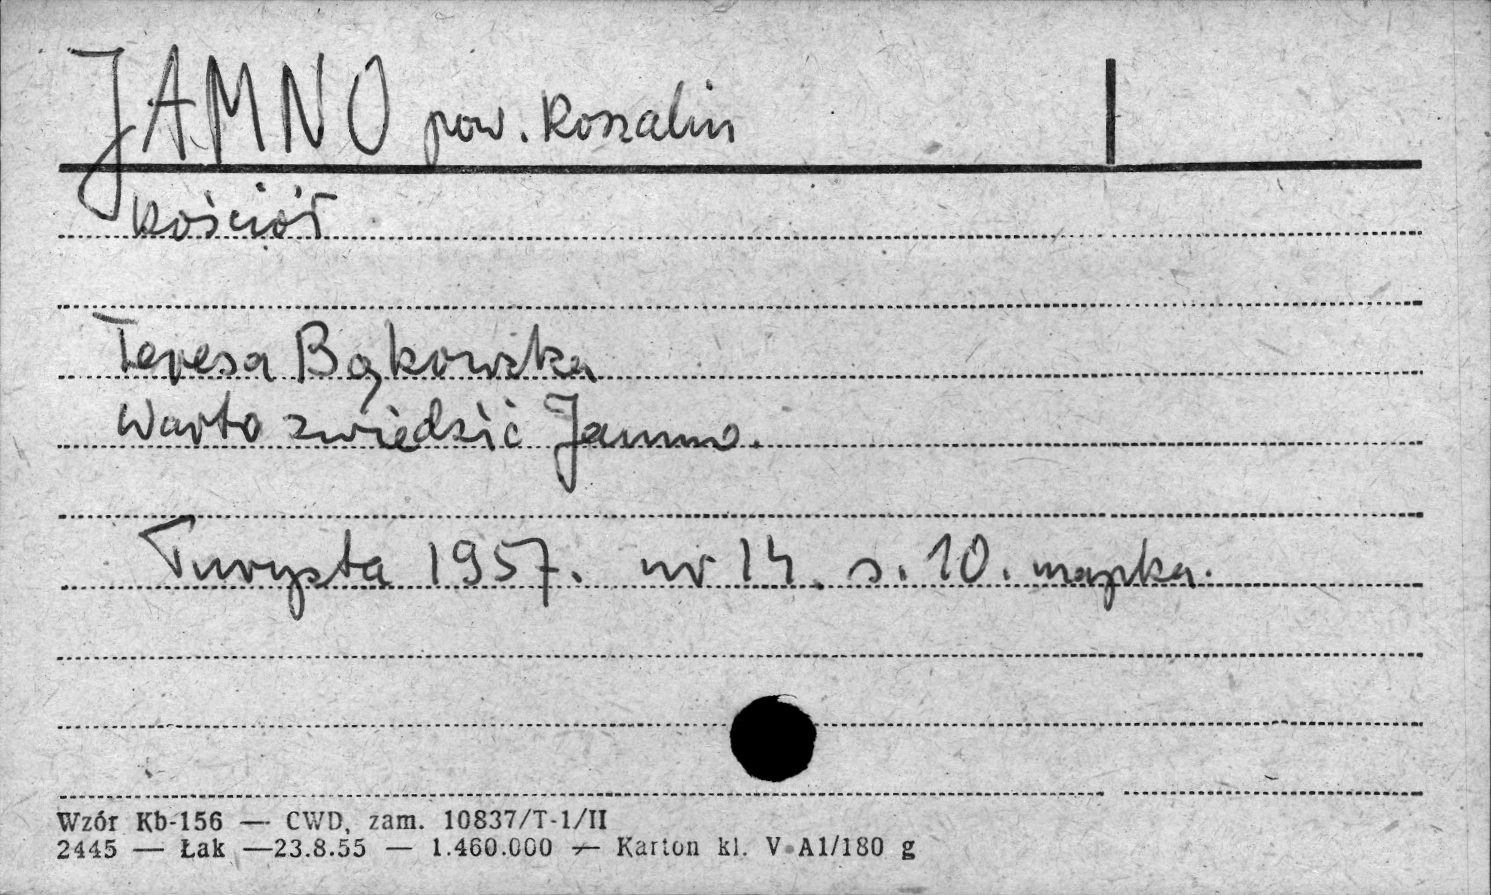 JAMNO pow. Koszalin
Kościół
Teresa Bąkowska
Warto zwiedzić Jamno.
Turysta 1957. nr 14. s. 10. mapka.
Wzór Kb-156 — CWD, zam. 10837/T-1/II
2445 — Łak —23.8.55 — 1.460.000 — Karton kl. V A1/180 g